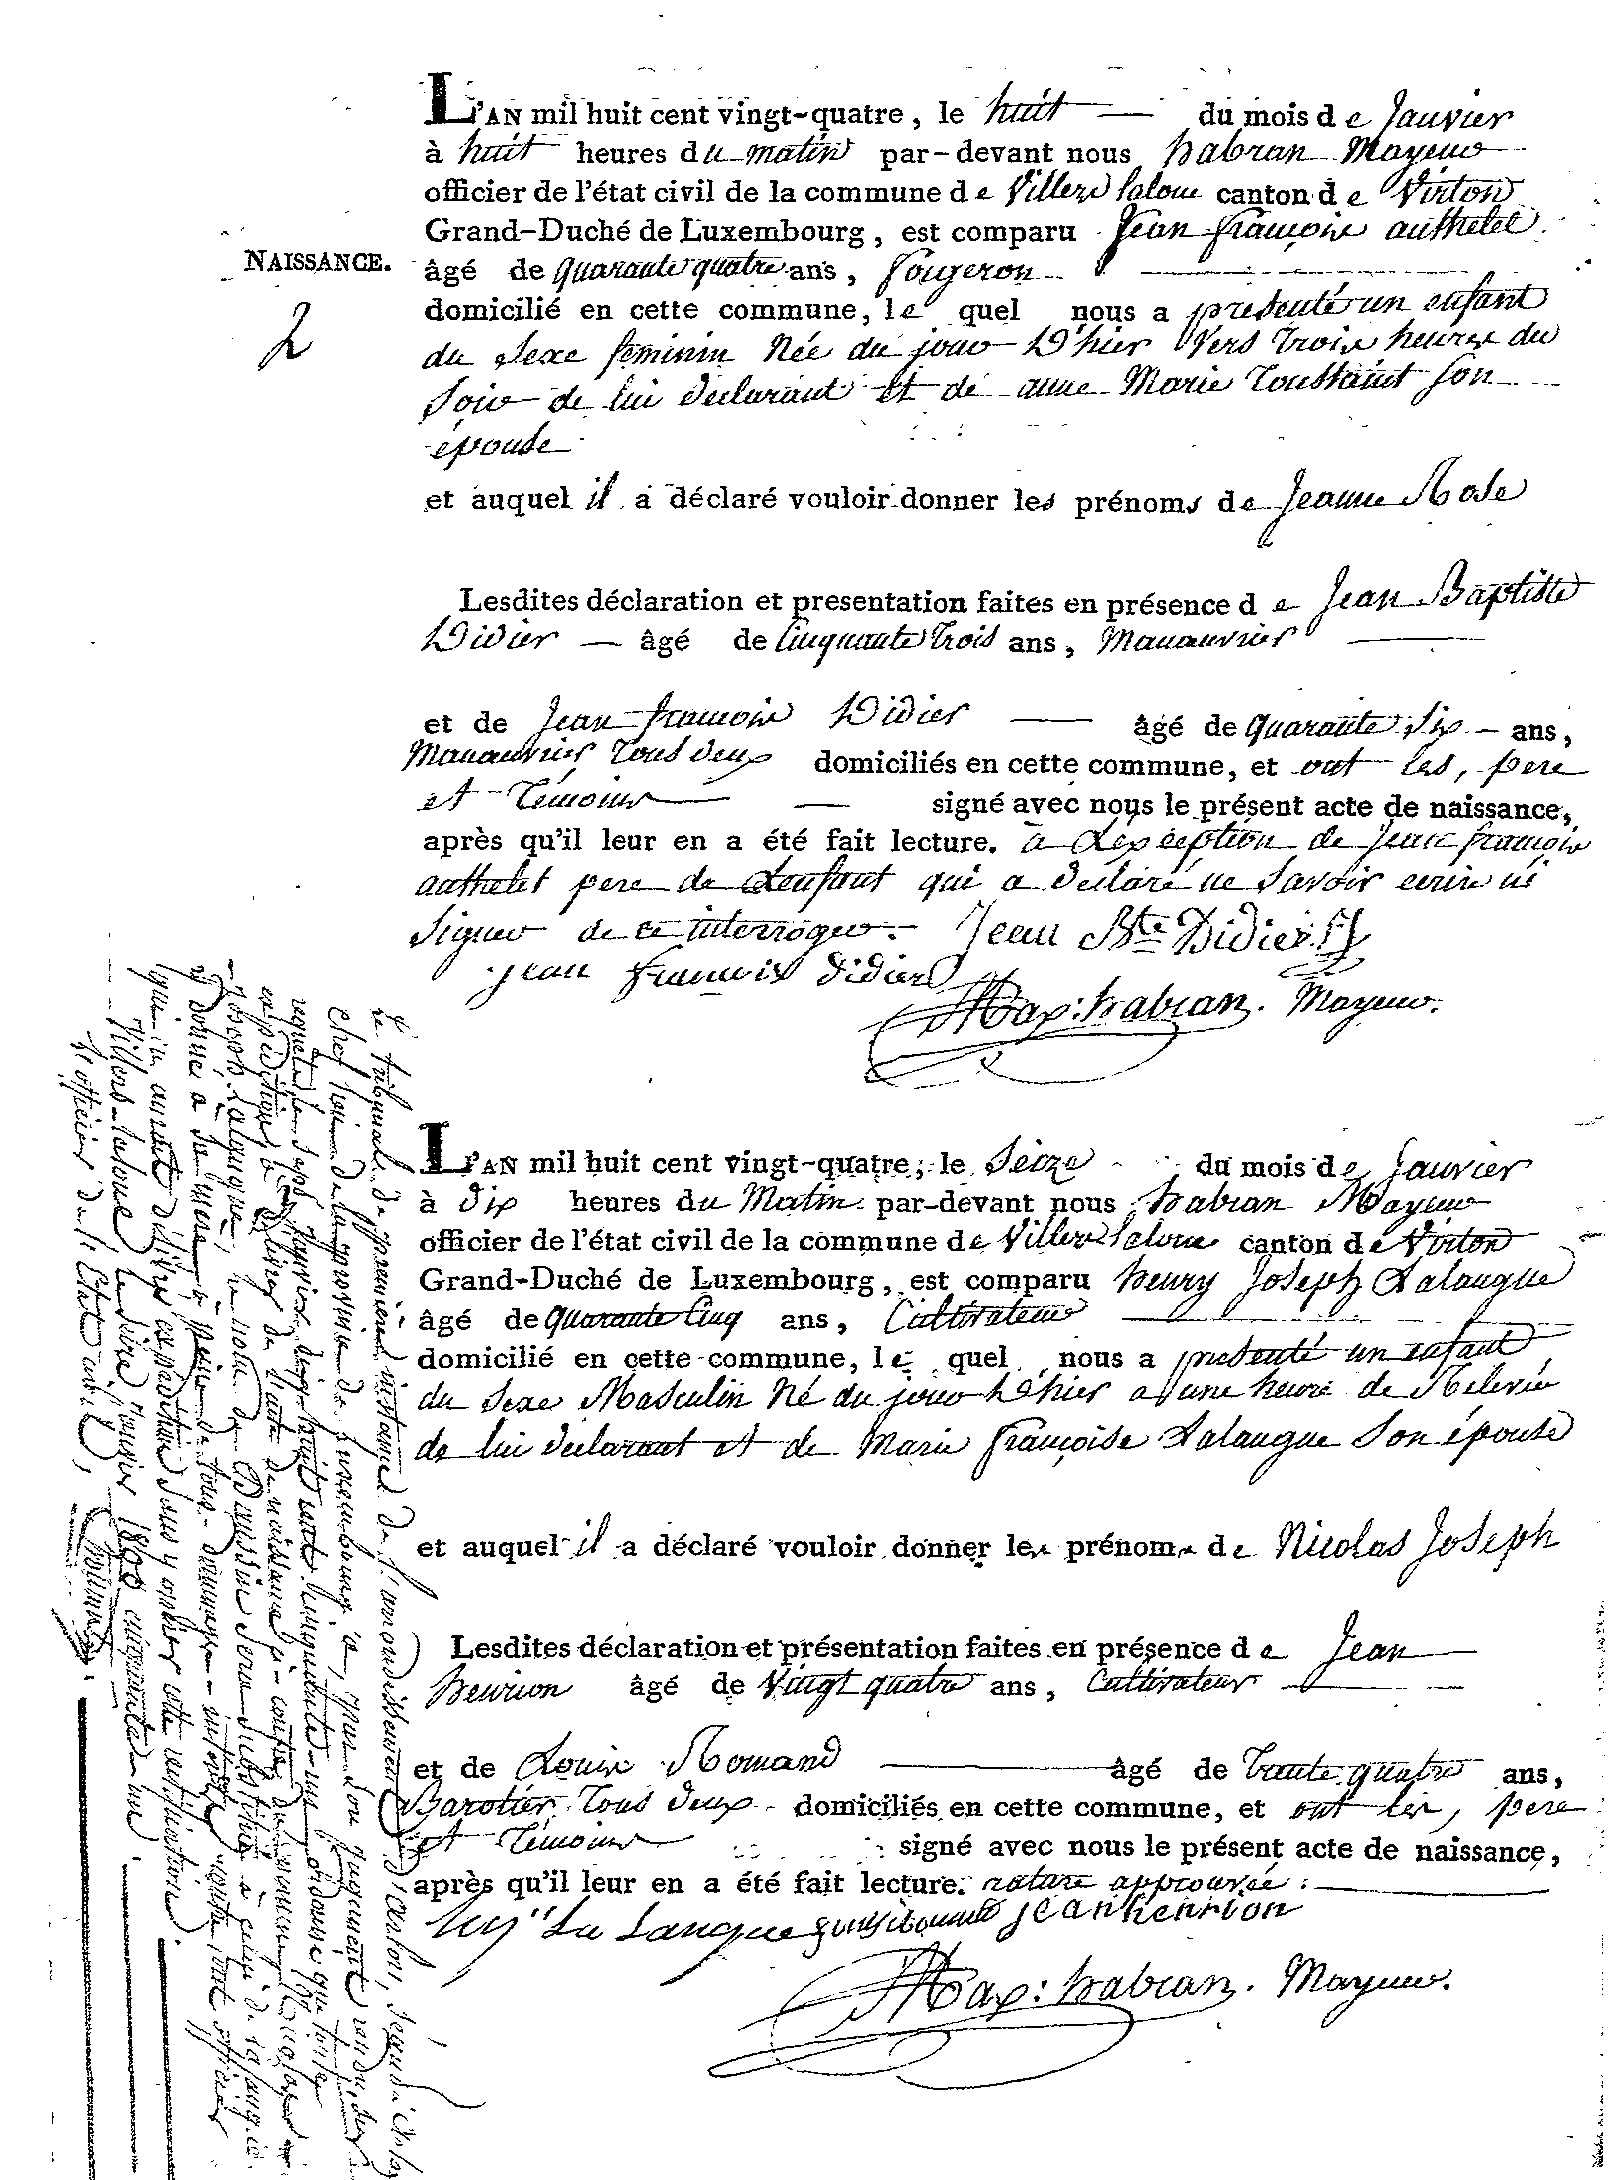 L'AN mil huit cent vingt-quatre, le huit — du mois de Janvier
à huit heures du matin par-devant nous habran Mayeur
officier de l'état civil de la commune de Villers laloue canton de Virton
Grand-Duché de Luxembourg, est comparu Jean françois authelet
NAISSANCE.
âgé de quarante quatre ans, forgeron
2
domicilié en cette commune, le quel nous a présenté un enfant
du Sexe feminin Née du jour D'hier Vers trois heures du
Soir de lui déclarant et de anne Marie Toussaint Son
épouse
et auquel il a déclaré vouloir donner les prénoms de Jeanne Rose
Lesdites déclaration et presentation faites en présence de Jean Baptiste
Didier — âgé de Cinquante trois ans, Manœuvrier
et de Jean françois Didier — âgé de quarante Six — ans,
Manœuvrier tous deux domiciliés en cette commune, et ont les, pere
et Témoins — signé avec nous le présent acte de naissance,
après qu'il leur en a été fait lecture. a Lexception de Jean françois
authelet pere de Lenfant qui a declaré ne Savoir ecrire ni
Signer de ce interroger. Jean Bte Didier
jean francois didier
Max: habran. Mayeur.
L'AN mil huit cent vingt-quatre, le Seize du mois de Janvier
à dix heures du Matin par-devant nous habran Mayeur
officier de l'état civil de la commune de Villers laloue canton de Virton
Grand-Duché de Luxembourg, est comparu henry Joseph Lalangue
âgé de quarante Cinq ans, Cultivateur
domicilié en cette commune, le quel nous a présenté un enfant
du Sexe Masculin Né du jour D'hier a une heure de Relevée
de lui declarant et de Marie françoise Lalangue Son épouse
et auquel il a déclaré vouloir donner les prénoms de Nicolas Joseph
Lesdites déclaration et présentation faites en présence de Jean
henrion âgé de Vingt quatre ans, Cultivateur
et de Louis Romand âgé de trente quatre ans,
Barotier tous deux domiciliés en cette commune, et ont les, pere
et Témoins signé avec nous le présent acte de naissance,
après qu'il leur en a été fait lecture. rature approuvée:
La Langue jean henrion
Max: habran. Mayeur.
le tribunal de première instance de l'arrondissement d'Arlon,
chef lieu de la province de Luxembourg a, par son jugement rendu
requête le Janvier dix huit cent cinquante un, ordonné que
expédition à délivrer de l'acte de naissance ci-contre
Joseph Lalangue, le nom de sera substitué à celui de Lalangue
donné à sa mère à peine de tous dommages
que en aurait délivré expédition sans y insérer cette rectification.
Villers-laloue, le Janvier 1800 cinquante un.
L'officier de l'Etat civil,